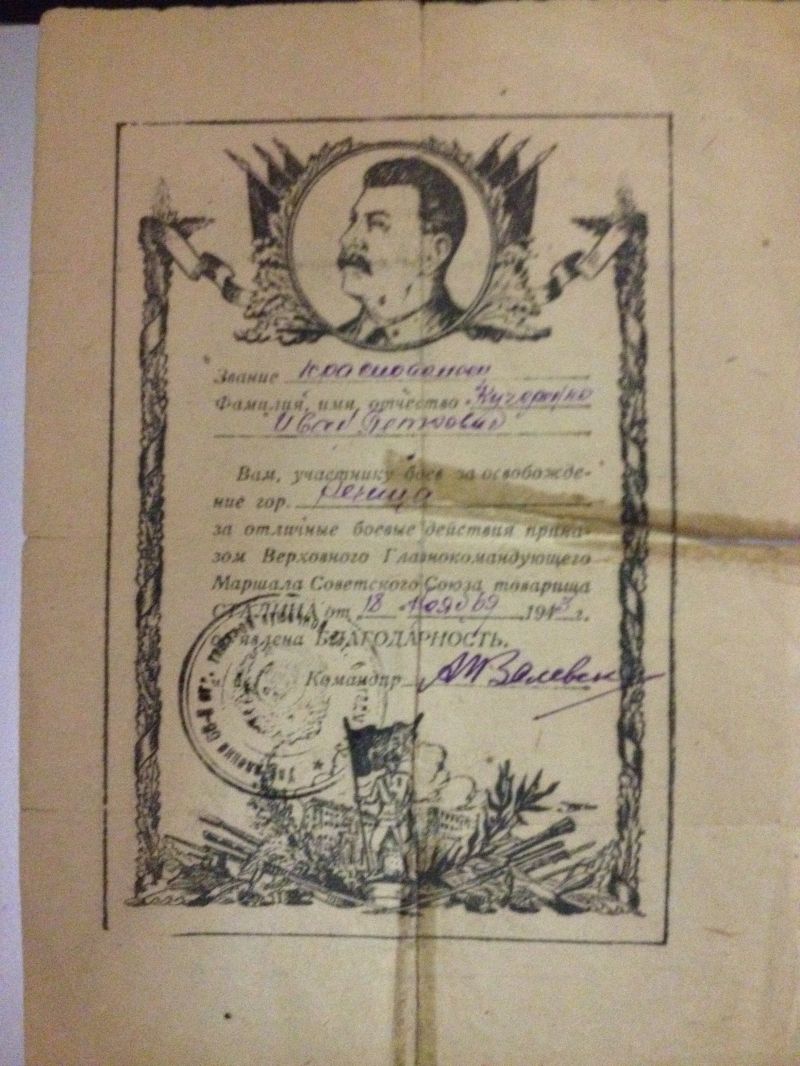 Звание Красноармеец
Фамилия, имя, отчество
Иван Петрович
Вам, участнику боев за освобожде-
ние гор. Речица
за отличные боевые действия прика-
зом Верховного Главнокомандующего
Маршала Советского Союза товарища
СТАЛИНА от 18 ноября 1943 г.
объявлена БЛАГОДАРНОСТЬ.
Командир